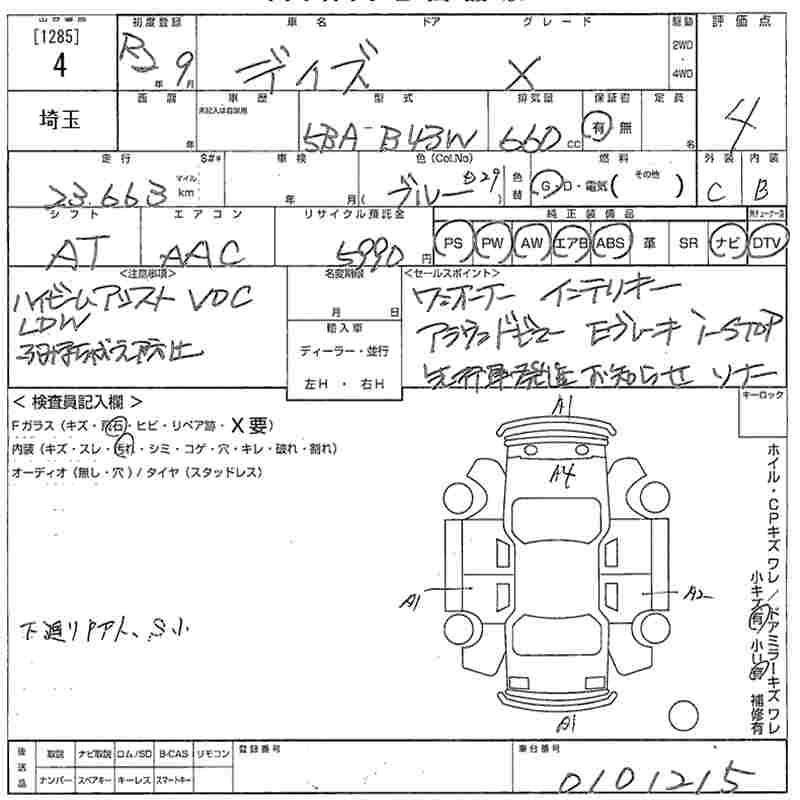 [1285]
4
初度登録 車名 ドア グレード 駆動 評価点
R2 年 9 月 デイズ X 2WD ・ 4WD 4
埼玉
西暦 車歴 型式 排気量 保証書 定員
年 未記入は自家用 5BA-B43W 660 CC 有 無 名
走行 S#* 車検 色(Col.No) 色替 燃料 外装 内装
23.663 マイル km 年 月( ブルー ) G・D・電気( その他 ) C B
シフト エアコン リサイクル預託金 純正装備品
AT AAC 5990 円 PS PW AW エアB ABS 革 SR ナビ DTV
<注意事項>
ハイビームアシスト VDC
LDW
名変期限
月 日
輸入車
ディーラー・並行
左H ・ 右H
<セールスポイント>
ワンオーナー インテリキー
アラウンドビュー Eブレーキ i-STOP
先行車発進お知らせ ソナー
キーロック
< 検査員記入欄 >
Fガラス (キズ・飛石・ヒビ・リペア跡・X要)
内装 (キズ・スレ・汚れ・シミ・コゲ・穴・キレ・破れ・割れ)
オーディオ (無し・穴) / タイヤ (スタッドレス)
A1
A4
A1
A2
A1
下廻りサアト、S小
ホイル・CPキズ ワレ / ドアミラーキズ ワレ
小キズ有 小U有 補修有
後送品
取説 ナビ取説 ロム/SD B-CAS リモコン
ナンバー スペアキー キーレス スマートキー
登録番号
車台番号
0101215